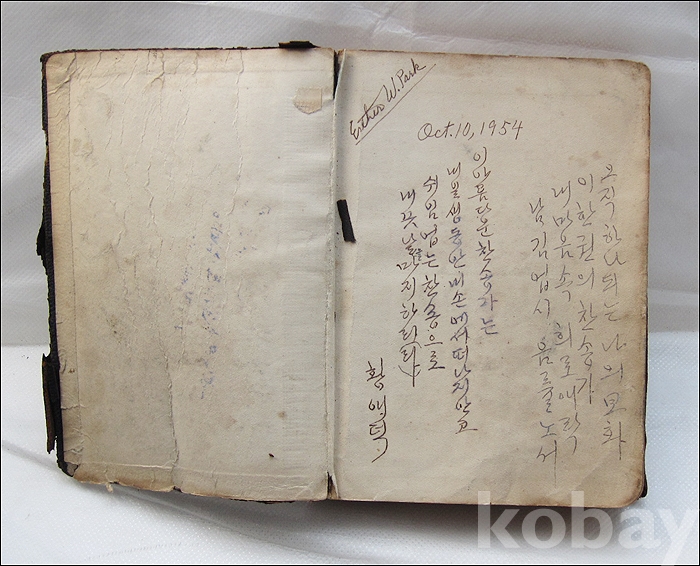 Esther W. Park
Oct. 10, 1954
오직 하나 되는 나의 보화
이 한 권의 찬송가
내 마음 속 희로애락
남김 업시 음률노써
이 아름다운 찬송가는
내 일생 동안 내 손에서 떠나지 안코
쉬임 업는 찬송으로
내 끗날을 마지하리라
황애덕
kobay